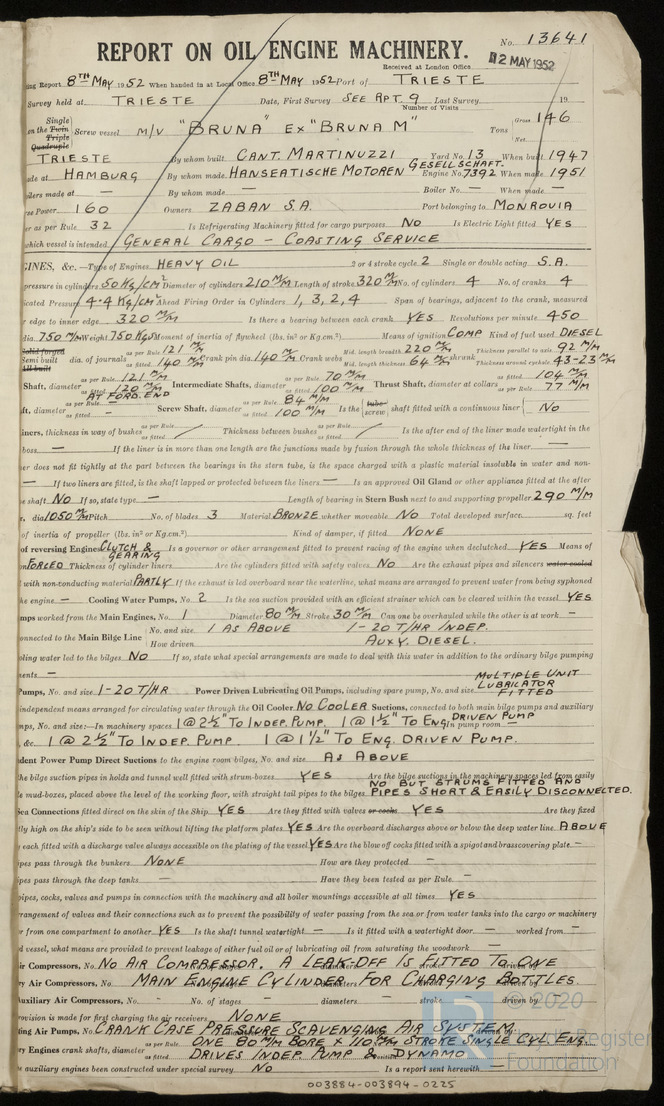 No. 13641
REPORT ON OIL ENGINE MACHINERY.
Received at London Office 12 MAY 1952
Report 8TH MAY 1952 When handed in at Local Office 8TH MAY 1952 Port of TRIESTE
Survey held at TRIESTE Date, First Survey SEE RPT. 9 Last Survey 19
Number of Visits
on the Single Twin Triple Quadruple Screw vessel M/V "BRUNA" EX "BRUNA M" Tons Gross 146 Net
TRIESTE By whom built CANT. MARTINUZZI Yard No. 13 When built 1947
made at HAMBURG By whom made HANSEATISCHE MOTOREN GESELLSCHAFT. Engine No. 7392 When made 1951
made at — By whom made — Boiler No. — When made —
Power 160 Owners ZABAN S.A. Port belonging to MONROVIA
as per Rule 32 Is Refrigerating Machinery fitted for cargo purposes NO Is Electric Light fitted YES
which vessel is intended GENERAL CARGO - COASTING SERVICE
GINES, &c. —Type of Engines HEAVY OIL 2 or 4 stroke cycle 2 Single or double acting S.A.
pressure in cylinders 50 KG/CM² Diameter of cylinders 210 M/M Length of stroke 320 M/M No. of cylinders 4 No. of cranks 4
icated Pressure 4.4 KG/CM² Ahead Firing Order in Cylinders 1, 3, 2, 4 Span of bearings, adjacent to the crank, measured
edge to inner edge 320 M/M Is there a bearing between each crank YES Revolutions per minute 450
dia. 750 M/M Weight 750 KGS Moment of inertia of flywheel (lbs. in² or Kg.cm.²) Means of ignition COMP Kind of fuel used DIESEL
Solid forged Semi built All built dia. of journals as per Rule 121 M/M as fitted 140 M/M Crank pin dia. 140 M/M Crank webs Mid. length breadth 220 M/M Mid. length thickness 64 M/M shrunk Thickness parallel to axis 92 M/M Thickness around eyehole 43-23 M/M
Shaft, diameter as per Rule 121 M/M as fitted 120 M/M AT FORD. END Intermediate Shafts, diameter as per Rule 70 M/M as fitted 100 M/M Thrust Shaft, diameter at collars as per Rule 104 M/M as fitted 77 M/M
ft, diameter as per Rule as fitted — Screw Shaft, diameter as per Rule 84 M/M as fitted 100 M/M Is the tube screw shaft fitted with a continuous liner NO
iners, thickness in way of bushes as per Rule as fitted Thickness between bushes as per Rule as fitted Is the after end of the liner made watertight in the
boss — If the liner is in more than one length are the junctions made by fusion through the whole thickness of the liner —
er does not fit tightly at the part between the bearings in the stern tube, is the space charged with a plastic material insoluble in water and non-
— If two liners are fitted, is the shaft lapped or protected between the liners — Is an approved Oil Gland or other appliance fitted at the after
shaft NO If so, state type — Length of bearing in Stern Bush next to and supporting propeller 290 M/M
dia. 1050 M/M Pitch No. of blades 3 Material BRONZE whether moveable NO Total developed surface sq. feet
of inertia of propeller (lbs. in² or Kg.cm.²) Kind of damper, if fitted NONE
of reversing Engines CLUTCH & GEARING Is a governor or other arrangement fitted to prevent racing of the engine when declutched YES Means of
FORCED Thickness of cylinder liners Are the cylinders fitted with safety valves NO Are the exhaust pipes and silencers water cooled
with non-conducting material PARTLY If the exhaust is led overboard near the waterline, what means are arranged to prevent water from being syphoned
the engine — Cooling Water Pumps, No. 2 Is the sea suction provided with an efficient strainer which can be cleared within the vessel YES
mps worked from the Main Engines, No. 1 Diameter 80 M/M Stroke 30 M/M Can one be overhauled while the other is at work —
connected to the Main Bilge Line No. and size 1 AS ABOVE 1-20 T/HR INDEP.
How driven AUXY. DIESEL.
oling water led to the bilges NO If so, state what special arrangements are made to deal with this water in addition to the ordinary bilge pumping
ments —
Pumps, No. and size 1-20 T/HR Power Driven Lubricating Oil Pumps, including spare pump, No. and size MULTIPLE UNIT LUBRICATOR FITTED
independent means arranged for circulating water through the Oil Cooler NO COOLER Suctions, connected to both main bilge pumps and auxiliary
mps, No. and size:—In machinery spaces 1 @ 2½" TO INDEP. PUMP. 1 @ 1½" TO ENG DRIVEN PUMP In pump room —
&c. 1 @ 2½" TO INDEP. PUMP. 1 @ 1½" TO ENG. DRIVEN PUMP.
dent Power Pump Direct Suctions to the engine room bilges, No. and size AS ABOVE
the bilge suction pipes in holds and tunnel well fitted with strum-boxes YES Are the bilge suctions in the machinery spaces led from easily
le mud-boxes, placed above the level of the working floor, with straight tail pipes to the bilges NO BUT STRUMS FITTED AND PIPES SHORT & EASILY DISCONNECTED.
Sea Connections fitted direct on the skin of the Ship YES Are they fitted with valves or cocks YES Are they fixed
tly high on the ship's side to be seen without lifting the platform plates YES Are the overboard discharges above or below the deep water line ABOVE
each fitted with a discharge valve always accessible on the plating of the vessel YES Are the blow off cocks fitted with a spigot and brass covering plate —
ipes pass through the bunkers NONE How are they protected —
ipes pass through the deep tanks — Have they been tested as per Rule —
pipes, cocks, valves and pumps in connection with the machinery and all boiler mountings accessible at all times YES
rrangement of valves and their connections such as to prevent the possibility of water passing from the sea or from water tanks into the cargo or machinery
or from one compartment to another YES Is the shaft tunnel watertight — Is it fitted with a watertight door — worked from —
d vessel, what means are provided to prevent leakage of either fuel oil or of lubricating oil from saturating the woodwork —
ir Compressors, No. NO AIR COMPRESSOR. A LEAK-OFF IS FITTED TO ONE
ry Air Compressors, No. MAIN ENGINE CYLINDER FOR CHARGING BOTTLES.
Auxiliary Air Compressors, No. - No. of stages - diameters — stroke driven by —
rovision is made for first charging the air receivers NONE
ing Air Pumps, No. CRANK CASE PRESSURE SCAVENGING AIR SYSTEM.
ry Engines crank shafts, diameter as per Rule as fitted ONE 80 M/M BORE × 110 M/M STROKE SINGLE CYL ENG. DRIVES INDEP. PUMP & DYNAMO
auxiliary engines been constructed under special survey NO Is a report sent herewith —
© 2020
Lloyd's Register
Foundation
003884-003894-0225